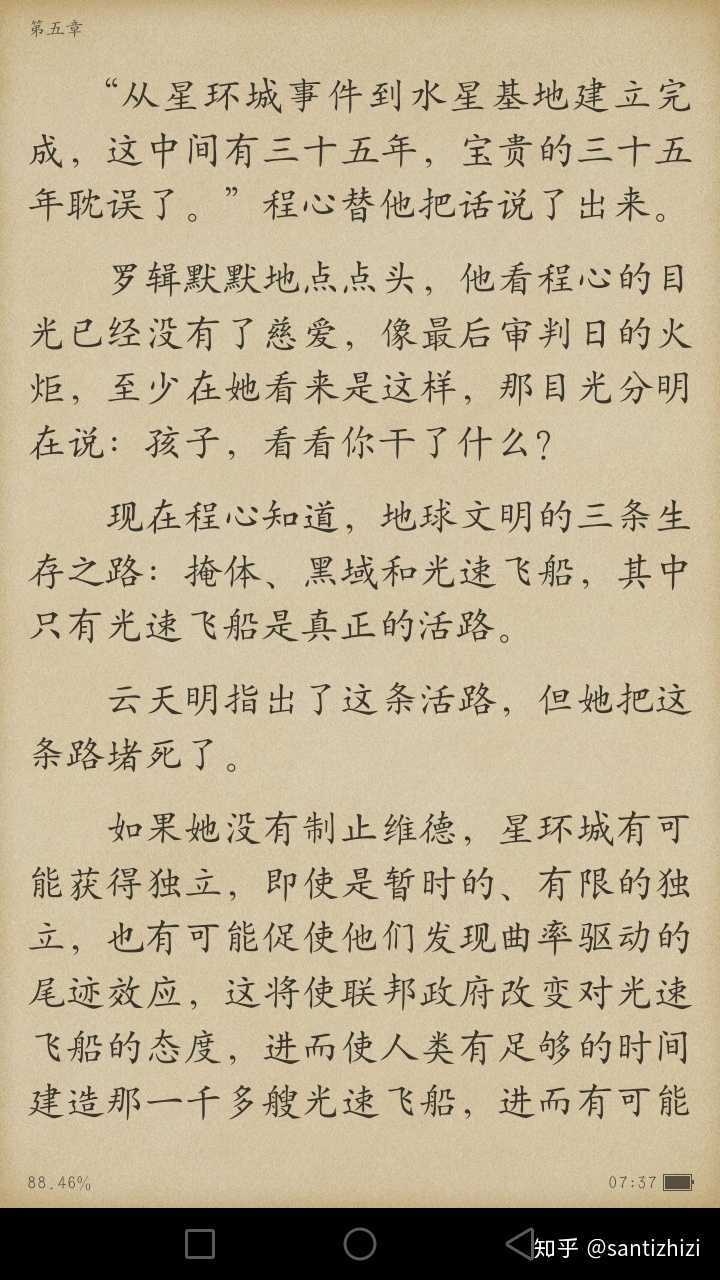 第五章
“从星环城事件到水星基地建立完
成，这中间有三十五年，宝贵的三十五
年耽误了。”程心替他把话说了出来。
罗辑默默地点点头，他看程心的目
光已经没有了慈爱，像最后审判日的火
炬，至少在她看来是这样，那目光分明
在说：孩子，看看你干了什么？
现在程心知道，地球文明的三条生
存之路：掩体、黑域和光速飞船，其中
只有光速飞船是真正的活路。
云天明指出了这条活路，但她把这
条路堵死了。
如果她没有制止维德，星环城有可
能获得独立，即使是暂时的、有限的独
立，也有可能促使他们发现曲率驱动的
尾迹效应，这将使联邦政府改变对光速
飞船的态度，进而使人类有足够的时间
建造那一千多艘光速飞船，进而有可能
88.46%
07:37
知乎 @santizhizi